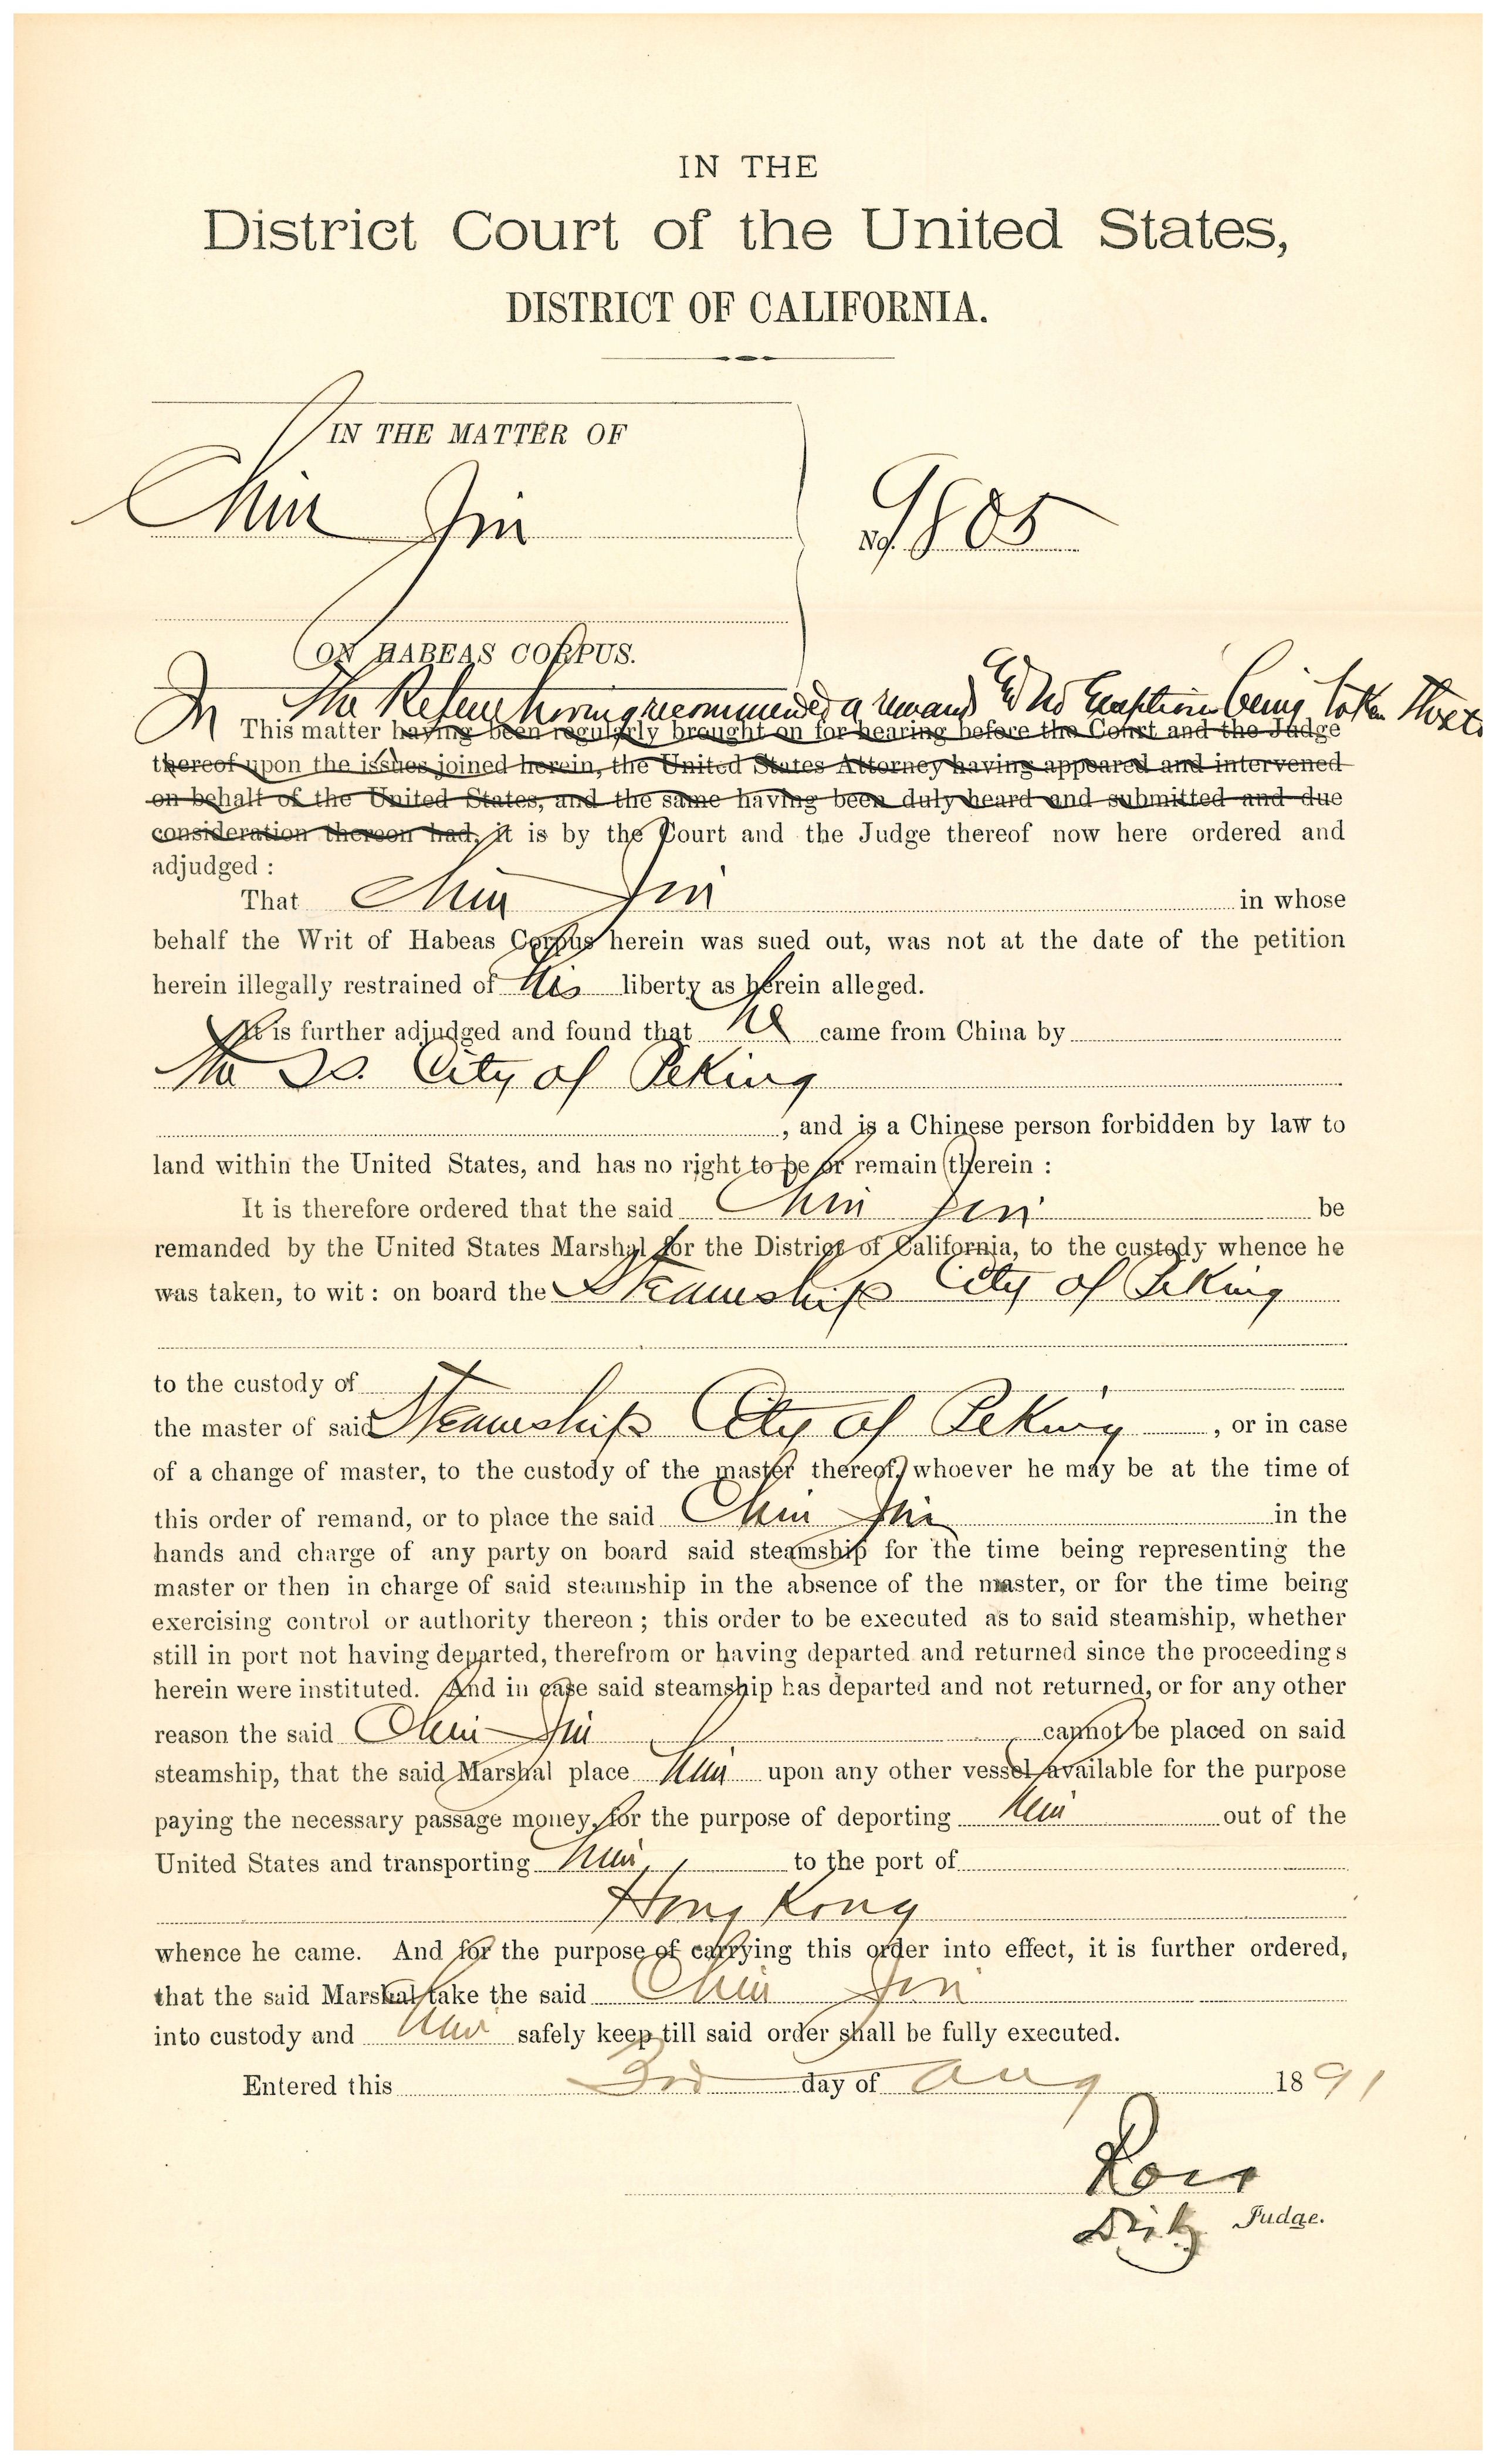 IN THE
District Court of the United States,
DISTRICT OF CALIFORNIA.
IN THE MATTER OF
Chin Jin
No. 9805
ON HABEAS CORPUS.
In The Referee having recommended a remand and no Exception being taken thereto
This matter having been regularly brought on for hearing before the Court and the Judge
thereof upon the issues joined herein, the United States Attorney having appeared and intervened
on behalf of the United States, and the same having been duly heard and submitted and due
consideration thereon had, it is by the Court and the Judge thereof now here ordered and
adjudged :
That Chin Jin in whose
behalf the Writ of Habeas Corpus herein was sued out, was not at the date of the petition
herein illegally restrained of his liberty as herein alleged.
It is further adjudged and found that he came from China by
the SS. City of Peking
, and is a Chinese person forbidden by law to
land within the United States, and has no right to be or remain therein :
It is therefore ordered that the said Chin Jin be
remanded by the United States Marshal for the District of California, to the custody whence he
was taken, to wit : on board the Steamship City of Peking
to the custody of
the master of said Steamship City of Peking , or in case
of a change of master, to the custody of the master thereof, whoever he may be at the time of
this order of remand, or to place the said Chin Jin in the
hands and charge of any party on board said steamship for the time being representing the
master or then in charge of said steamship in the absence of the master, or for the time being
exercising control or authority thereon ; this order to be executed as to said steamship, whether
still in port not having departed, therefrom or having departed and returned since the proceedings
herein were instituted. And in case said steamship has departed and not returned, or for any other
reason the said Chin Jin cannot be placed on said
steamship, that the said Marshal place him upon any other vessel available for the purpose
paying the necessary passage money, for the purpose of deporting him out of the
United States and transporting him to the port of
Hong Kong
whence he came. And for the purpose of carrying this order into effect, it is further ordered,
that the said Marshal take the said Chin Jin
into custody and him safely keep till said order shall be fully executed.
Entered this 3rd day of Aug 1891
Ross
Judge.